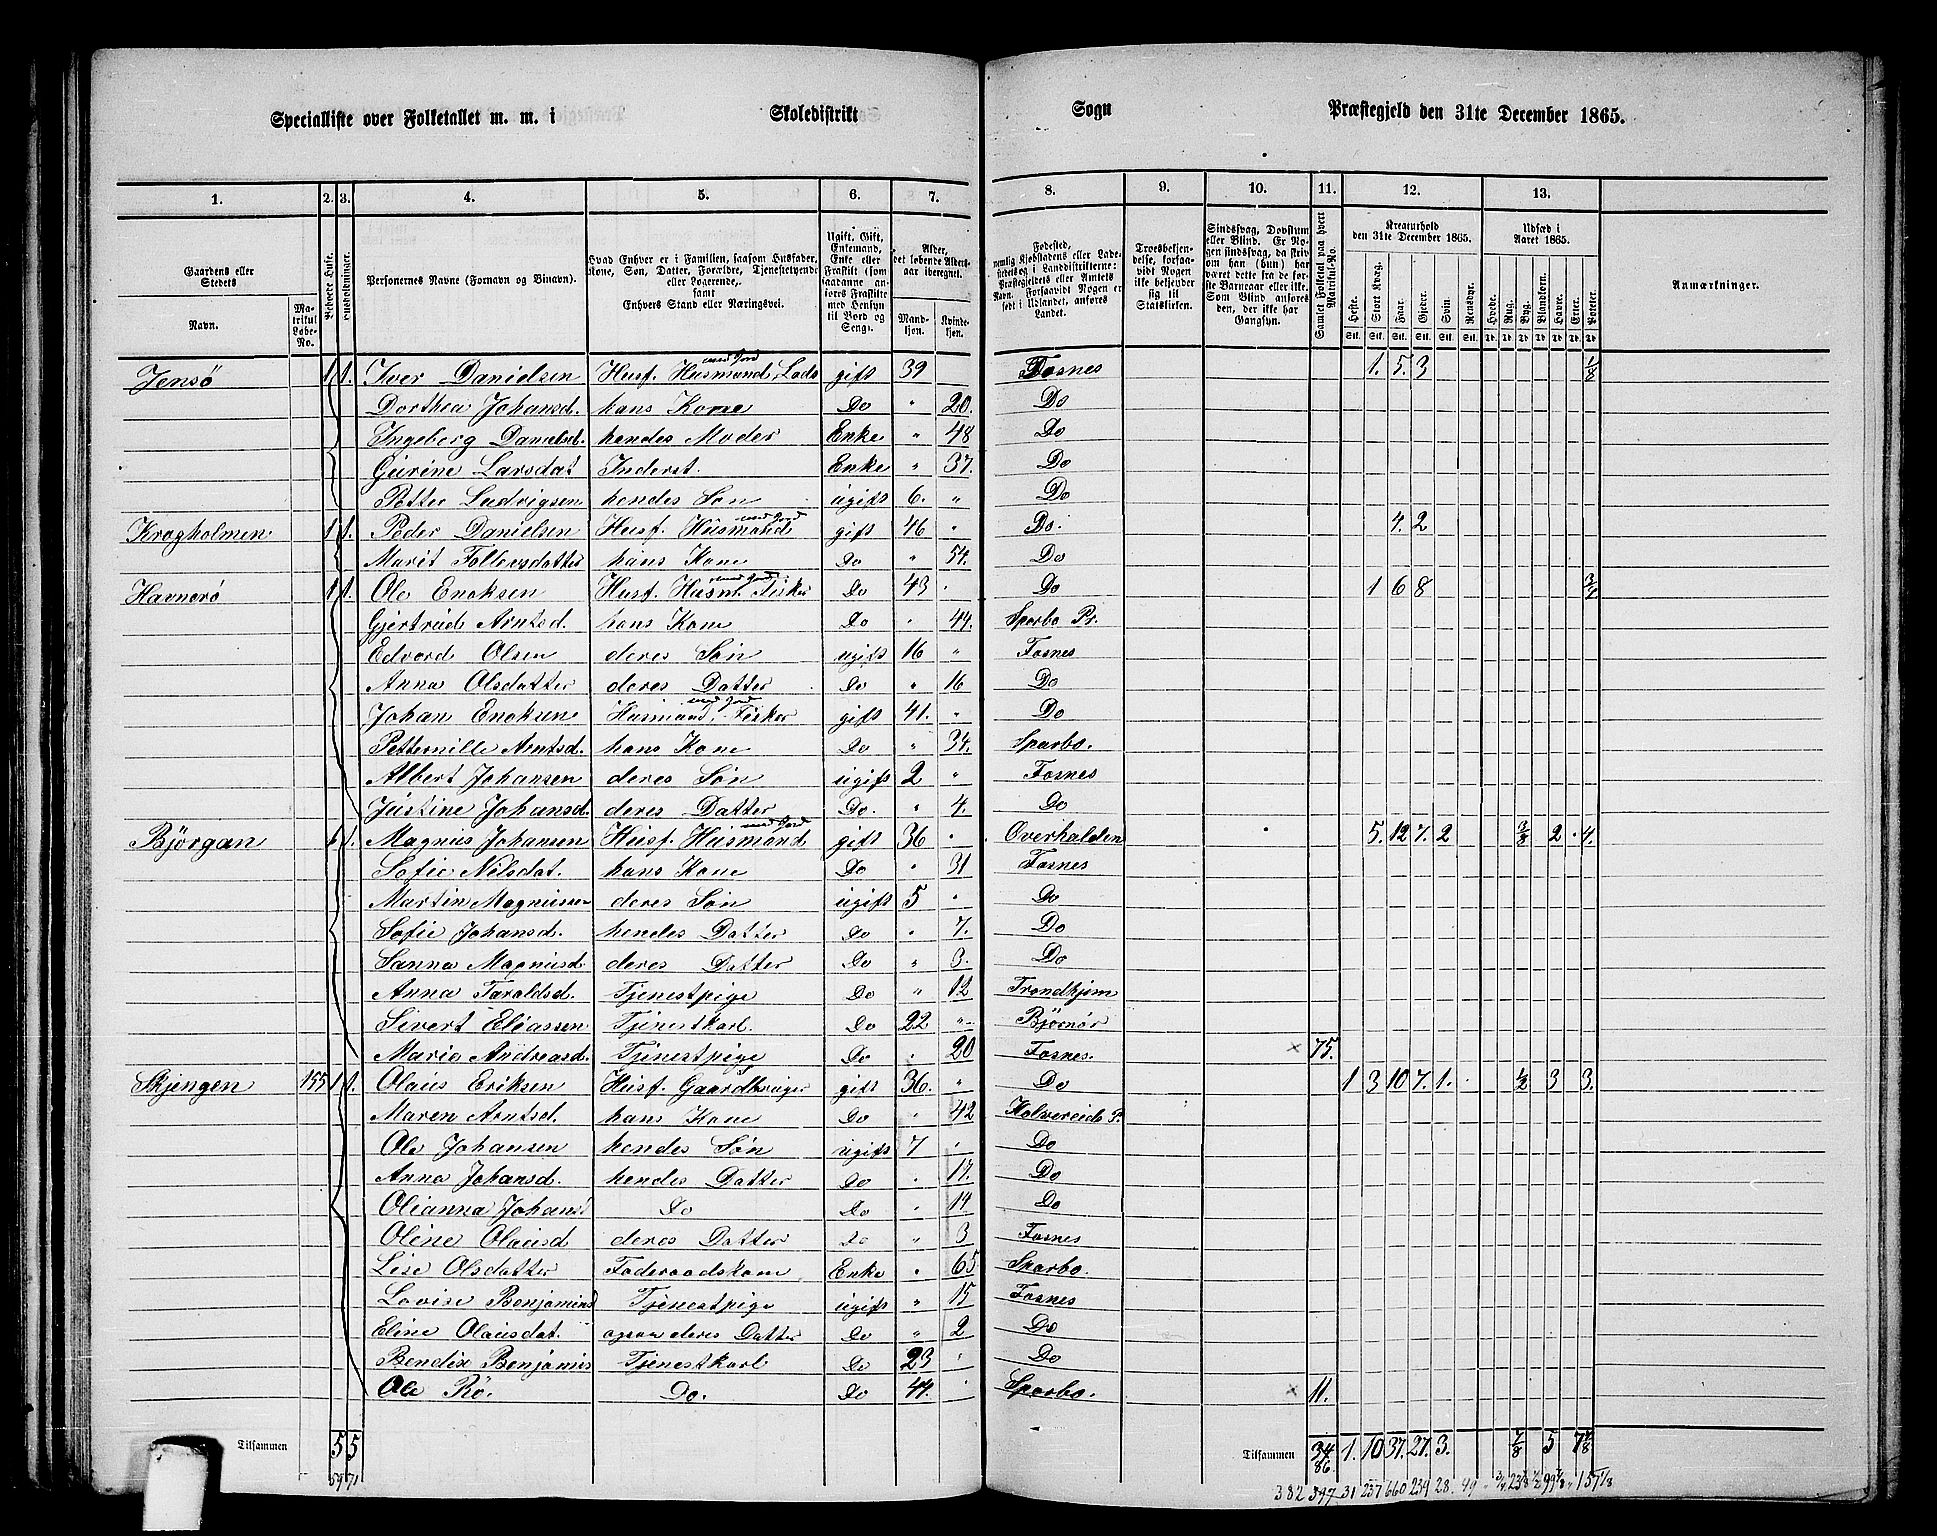 Specialliste over Folketallet m. m. i Skoledistrikt Sogn Præstegjeld den 31te December 1865.
1. 2. 3. 4. 5. 6. 7. 8. 9. 10. 11. 12. 13.
Gaardens eller Stedets Navn. Matrikul Løbe-No. Beboede Huse. Huusholdninger. Personernes Navne (Fornavn og Binavn). Hvad Enhver er i Familien, saasom Husfader, Kone, Søn, Datter, Forældre, Tjenestetyende eller Logerende, samt Enhvers Stand eller Næringsvei. Ugift, Gift, Enkemand, Enke eller Fraskilt (saadanne anføres som Fraskilte med Hensyn til Bord og Seng). Alder, det løbende Aldersaar iberegnet. Mandkjøn. Kvindekjøn. Fødested, Troesbekjendelse, forsaavidt Nogen ikke bekjender sig til Statskirken. Sindssvag, Døvstum eller Blind. Samlet Folketal paa hvert Matrikul-No. Kreaturhold den 31te December 1865. Heste. Stort Kvæg. Faar. Gjeder. Svin. Rensdyr. Udsæd i Aaret 1865. Hvede. Rug. Byg. Blandkorn. Havre. Erter. Poteter. Anmærkninger.
Jensö 1 1. Iver Danielsen Husf. Husmand med Jord, Lods gift 39 Fosnes 1. 5. 3 1/8
Dorthea Johansd. hans Kone Do " 20. Do
Ingeborg Danielsd. hendes Moder Enke " 48 Do
Gurine Larsdat Inderst. Enke " 37. Do
Petter Ludvigsen hendes Søn ugift 6. " Do
Kragholmen 1 1. Peder Danielsen Husf. Husmand med Jord gift 46 " Do. 4. 2
Marit Follevsdatter hans Kone Do " 54. Do
Havnerö 1 1. Ole Enoksen Husf. Husm. med Jord, Fisker Do 43 . Do 1 6 8 3/4
Gjertrud Arntsd. hans Kone Do . 44. Sparbo Pr.
Edvard Olsen deres Søn ugift 16 " Fosnes
Anna Olsdatter deres Datter Do " 16 Do
Johan Enoksen Husmand med Jord, Fisker gift 41. " Do
Petternille Arntsd. hans Kone Do " 34. Sparbo.
Albert Johansen deres Søn ugift 2 " Fosnes
Justine Johansd. deres Datter Do. " 4. Do
Björgan 6 1. Magnus Johansen Husf. Husmand med Jord gift 36 . Overhalden 5. 12 7. 2 3/8 2 . 4.
Sofie Nilsdat. hans Kone Do " 31 Fosnes
Martin Magnusen deres Søn ugift 5 " Do
Sofie Johansd. hendes Datter Do " 7. Do
Sanna Magnusd. deres Datter Do " 3. Do
Anna Taraldsd. Tjenestpige Do " 12 Trondhjem
Sivert Eliassen Tjenestkarl. Do 22 " Bjørnör
Maria Andreasd. Tjenestpige Do . 20 Fosnes. × 75.
Skjengen 155 1 1. Olaus Eriksen Husf. Gaardbruger gift 36. " Do 1 3 10 7. 1. 1/2 3 3.
Maren Arntsd. hans Kone Do " 42 Kolvereid P.
Ole Johansen hendes Søn ugift 7 . Do
Anna Johansd. hendes Datter Do . 17. Do
Olianna Johansd Do Do . 14 Do
Oline Olausd deres Datter Do " 3 Fosnes
Lise Olsdatter Føderaadskone Enke " 65 Sparbo.
Lovise Benjamind Tjenestpige ugift " 15 Fosnes
Eline Olausdat. ogsaa deres Datter Do " 2 Do
Bendix Benjamins Tjenestkarl Do 23 " Do
Ole Rö. Do. Do 44. . Sparbo. × 11.
Tilsammen 5 5 Tilsammen 34 1. 10 37. 27. 3. 7/8 5 7 7/8
59 71 86.
382 397 31 237 660 239 28. 49